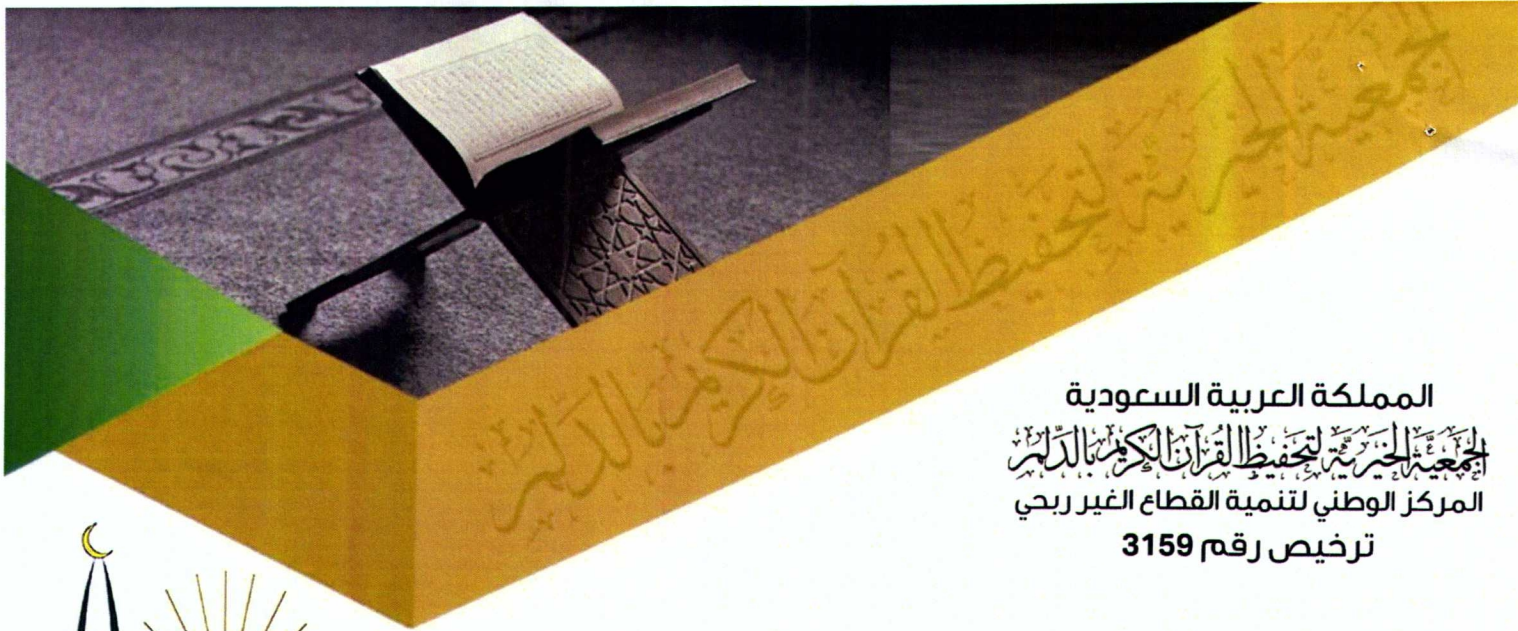 الجمعية الخيرية لتحفيظ القرآن الكريم بالدلم
المملكة العربية السعودية
الجمعية الخيرية لتحفيظ القرآن الكريم بالدلم
المركز الوطني لتنمية القطاع الغير ربحي
ترخيص رقم 3159